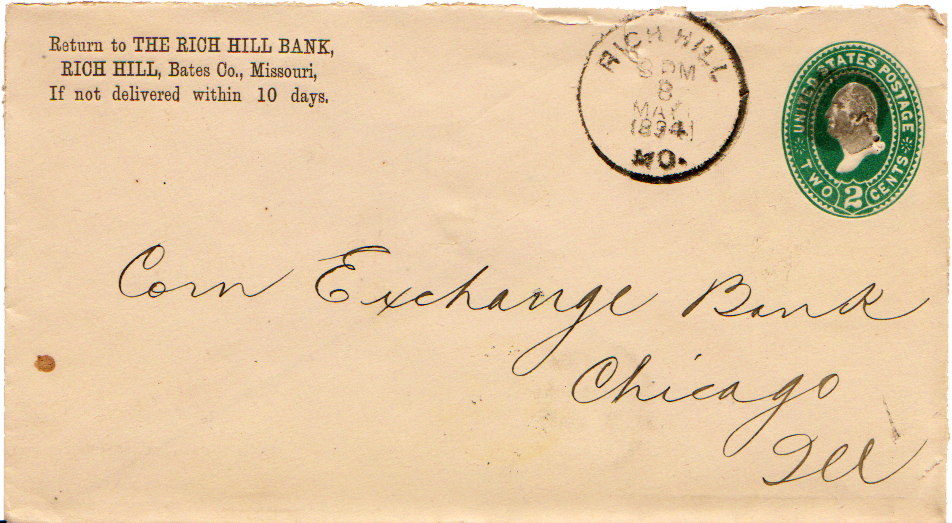 Return to THE RICH HILL BANK,
RICH HILL, Bates Co., Missouri,
If not delivered within 10 days.
RICH HILL
8 PM
8
MAY
1894
MO.
UNITED STATES POSTAGE
TWO 2 CENTS
Corn Exchange Bank
Chicago
Ill